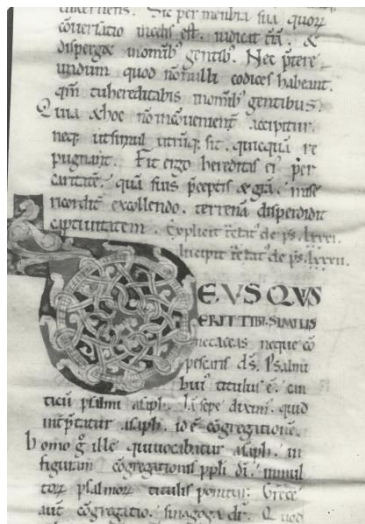 Sic per membra sua quorū
cōversatio in celis est. iudicat trā. &
disperget in omīb; gentib;. Nec pretere
undum quod nōnulli codices habeant.
qm̄ tu hereditabis in omīb; gentibus.
Quia & hoc nō incōvenient accipitur.
neq; ut simul utrūq; sit. quicquā re
pugnant. Fit ergo hereditas ei per
caritatē. quā suis p̄ceptis & grā. mise
ricordit excollendo. terrenā disperdidit
cupiditatem. Explicit de ps. lxxxi.
Incipit de ps. lxxxii.
DEVS QVIS
ERIT TIBI SIMILIS
ne taceas neque cō
pescaris ds̄. Psalmi
hui; titulus ē. can
ticū psalmi asaph. Iā sepe diximꝰ. quid
int̄p̄tatur asaph. id ē cōgregatione.
homo g̊ ille qui vocabatur asaph. in
figuram cōgregationis pp̄li dī. in mul
torꝝ psalmorꝝ titulis ponitur. Grece
aut̄ cōgregatio. sinagoga dr̄. Quod